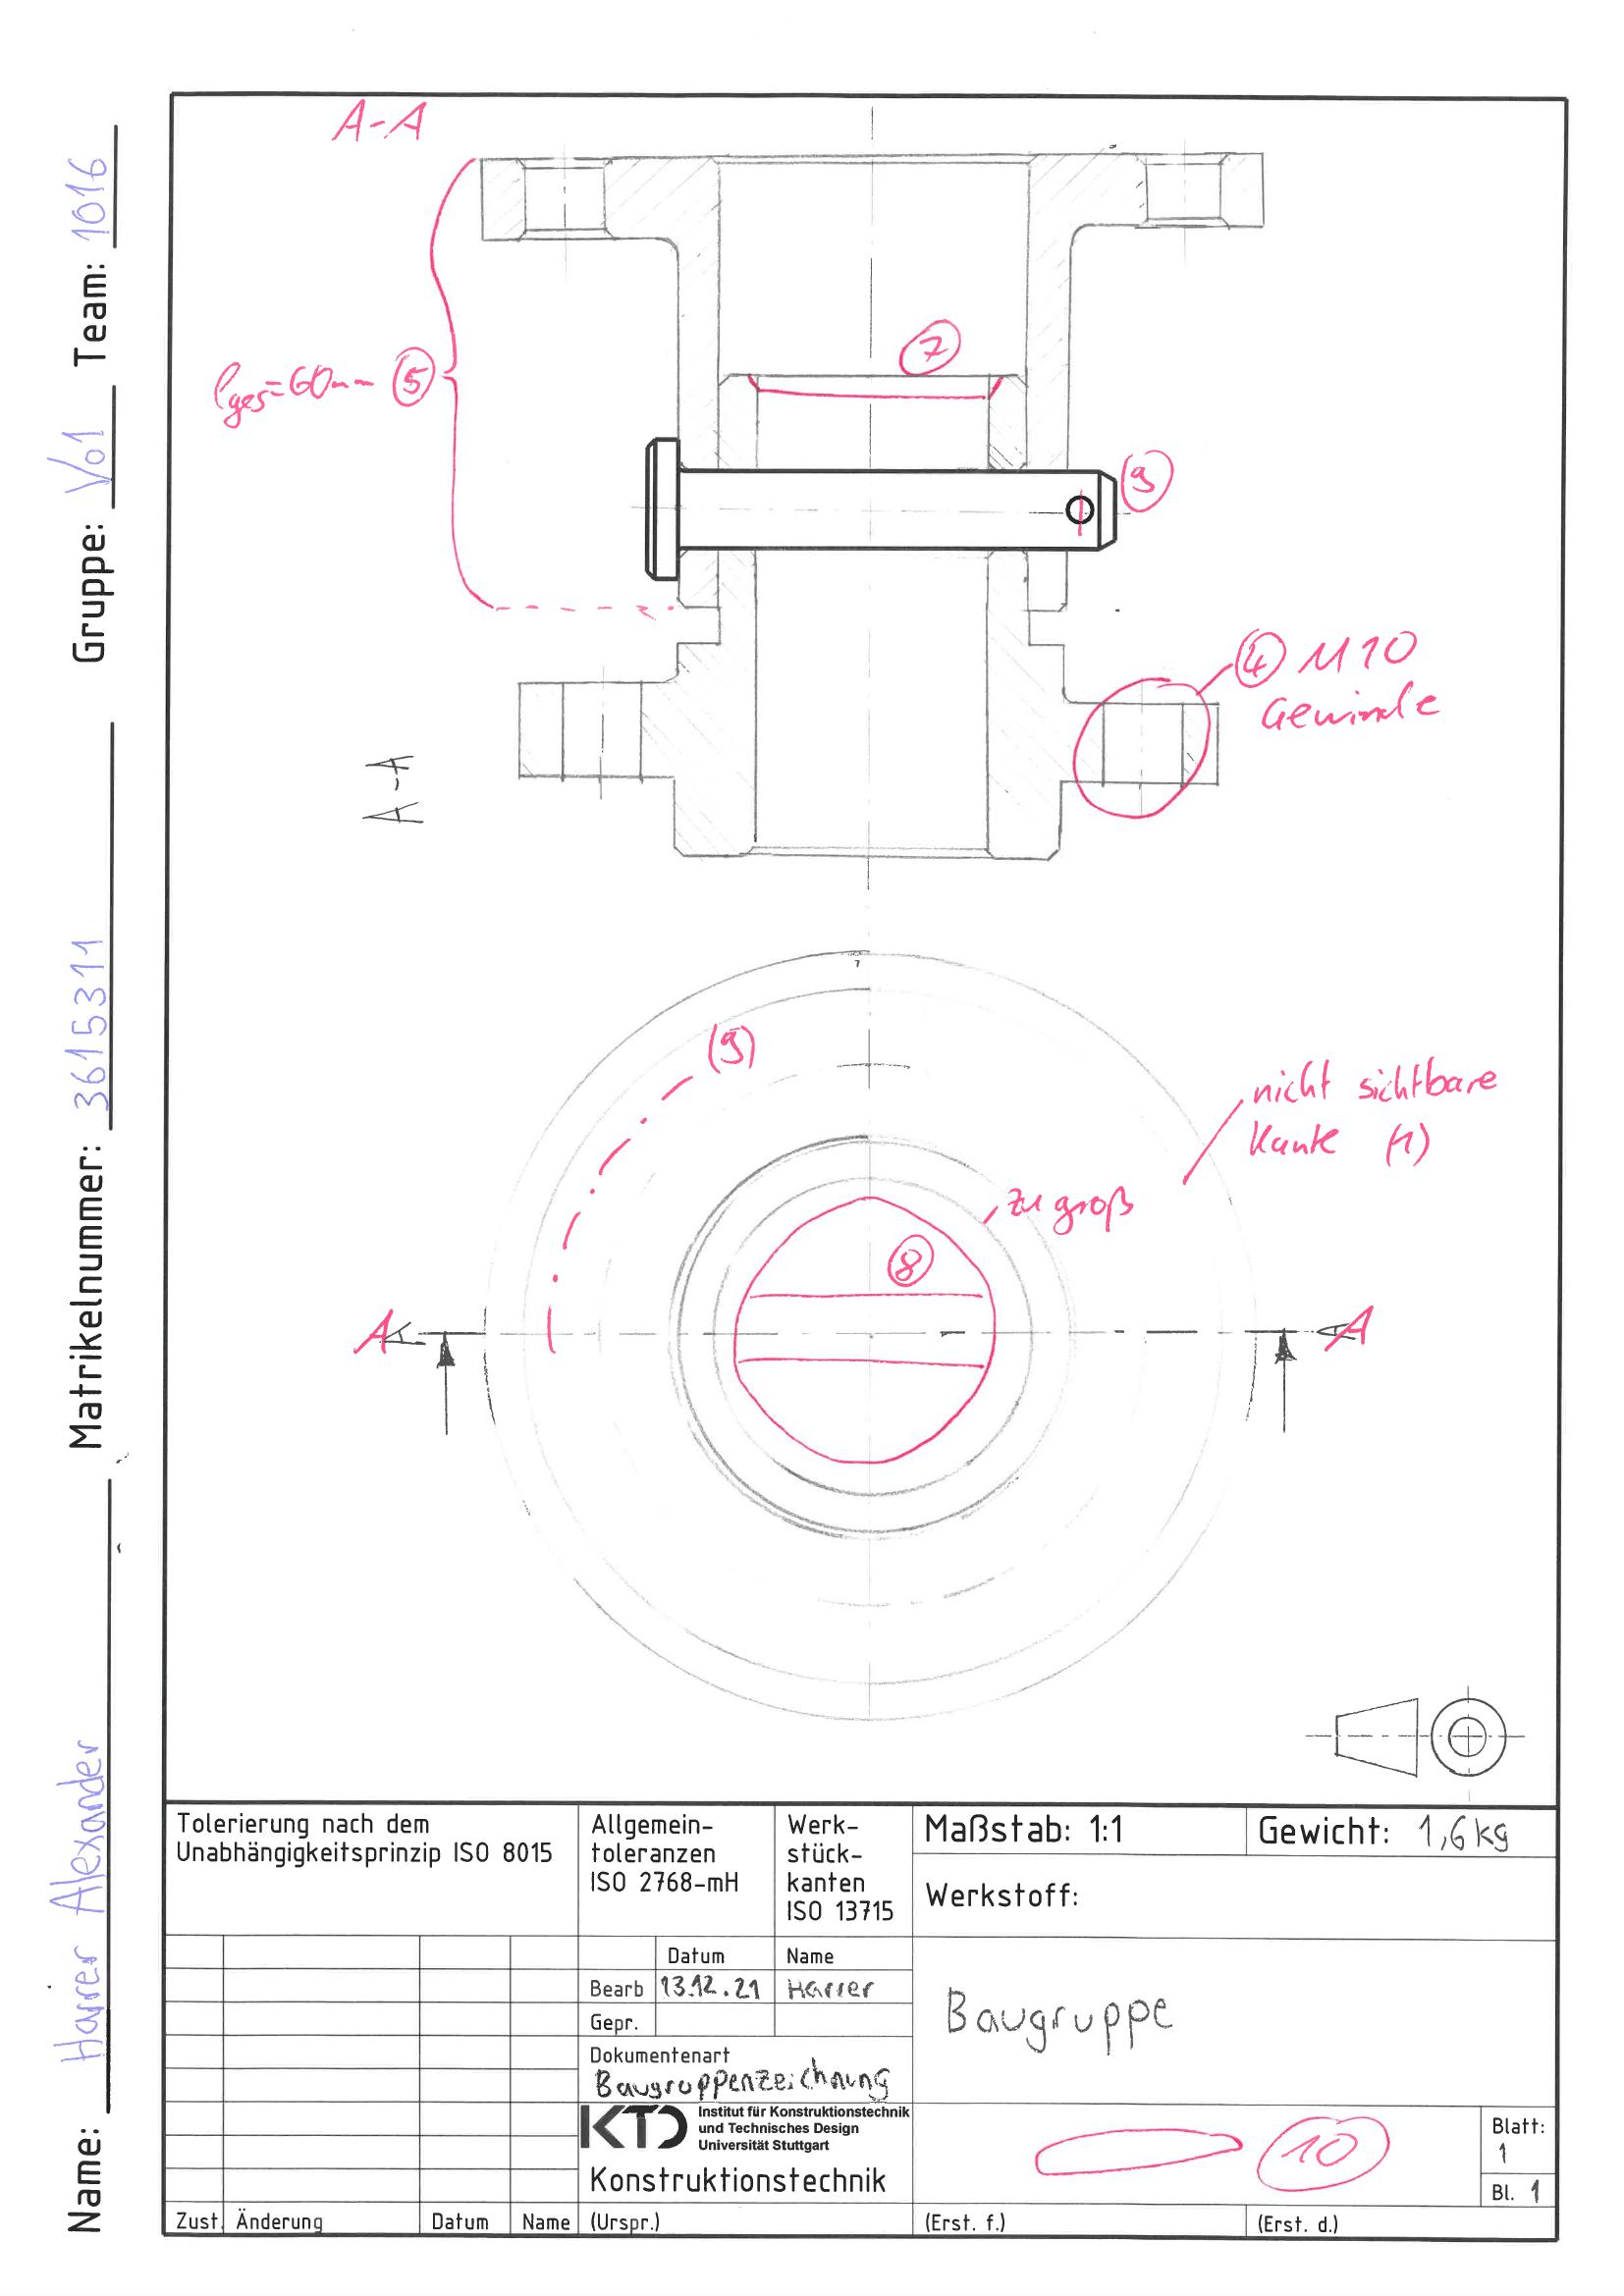 Name: Harrer Alexander Matrikelnummer: 3615311 Gruppe: V01 Team: 1016
A-A
7
lges=60mm 5
9
4 M10
Gewinde
A-A
(9)
nicht sichtbare
Kante (1)
zu groß
8
A A A A
Tolerierung nach dem
Unabhängigkeitsprinzip ISO 8015
Allgemein-
toleranzen
ISO 2768-mH
Werk-
stück-
kanten
ISO 13715
Maßstab: 1:1
Gewicht: 1,6kg
Werkstoff:
Datum Name
Bearb 13.12.21 Harrer
Gepr.
Dokumentenart
Baugruppenzeichnung
Baugruppe
KTD Institut für Konstruktionstechnik
und Technisches Design
Universität Stuttgart
Konstruktionstechnik
10
Blatt:
1
Bl. 1
Zust. Änderung Datum Name (Urspr.) (Erst. f.) (Erst. d.)